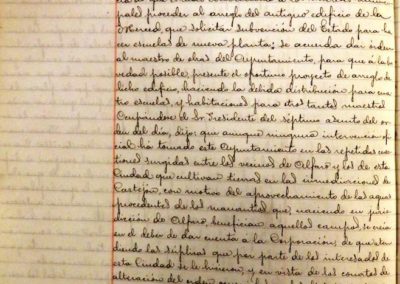 pales proceder al arreglo del antiguo edificio de la
Merced, que solicitar subvención del Estado para ha
cer escuelas de nueva planta; se acuerda dar orden
al maestro de obras del Ayuntamiento, para que á la bre
vedad posible, presente el oportuno proyecto de arreglo de
dicho edificio, haciendo la debida distribución para cua
tro escuelas, y habitaciones para otros tantos maestros.
Ocupándose el Sr. Presidente del séptimo asunto del or
den del día, dijo: que aunque ninguna intervención ofi
cial ha tomado este Ayuntamiento en las repetidas cues
tiones surgidas entre los vecinos de Alfaro y los de esta
Ciudad que cultivan tierras en las inmediaciones de
Castejón, con motivo del aprovechamiento de las aguas
procedentes de los manantiales que, naciendo en juris
dicción de Alfaro, benefician aquellos campos, se creía
en el deber de dar cuenta a la Corporación, de que aten
diendo las súplicas que por parte de los interesados de
esta Ciudad se le hicieron, y en vista de los conatos de
alteración del orden